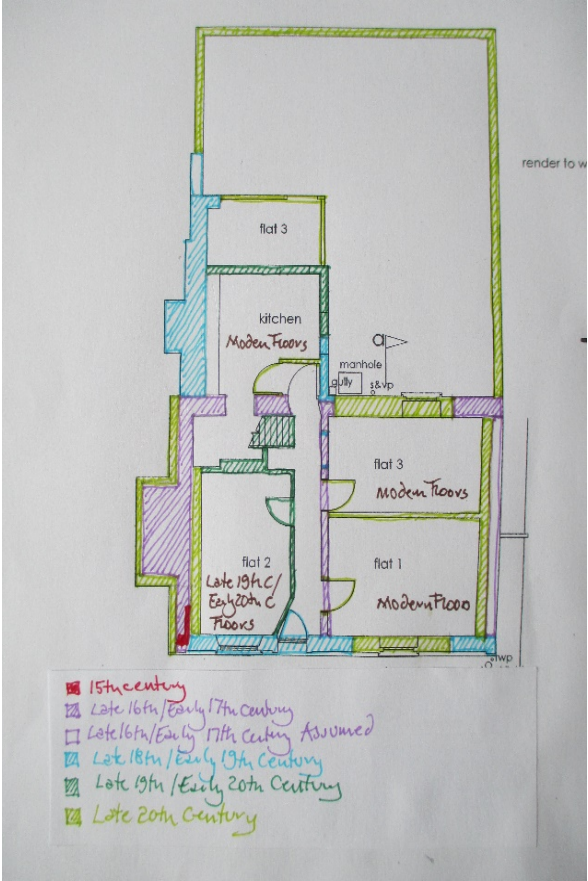 render to w
flat 3
kitchen
Modern Floors
a
manhole
gully
s&vp
flat 3
Modern Floors
flat 2
Late 19th C/
Early 20th C
Floors
flat 1
Modern Flooo
rwp
15th century
Late 16th/Early 17th Century
Late 16th/Early 17th Century Assumed
Late 18th/Early 19th Century
Late 19th/Early 20th Century
Late 20th Century